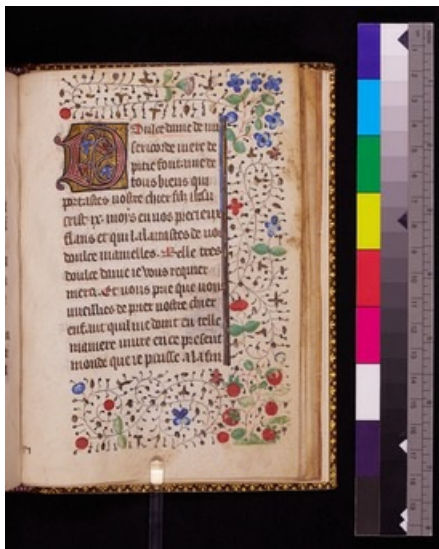 Doulce dame de mi
sericorde mere de
pitie fontaine de
tous biens qui
portastes nostre chier filz ihesu
crist .ix. mois en vos precieux
flans et qui l'alaitastes de vos
doulce mamelles. Belle tres
doulce dame ie vous requier
merci. Et vous prie que vous
vueilles de prier nostre chier
enfant quil me doint en telle
maniere viure en ce present
monde que ie puisse a la fin